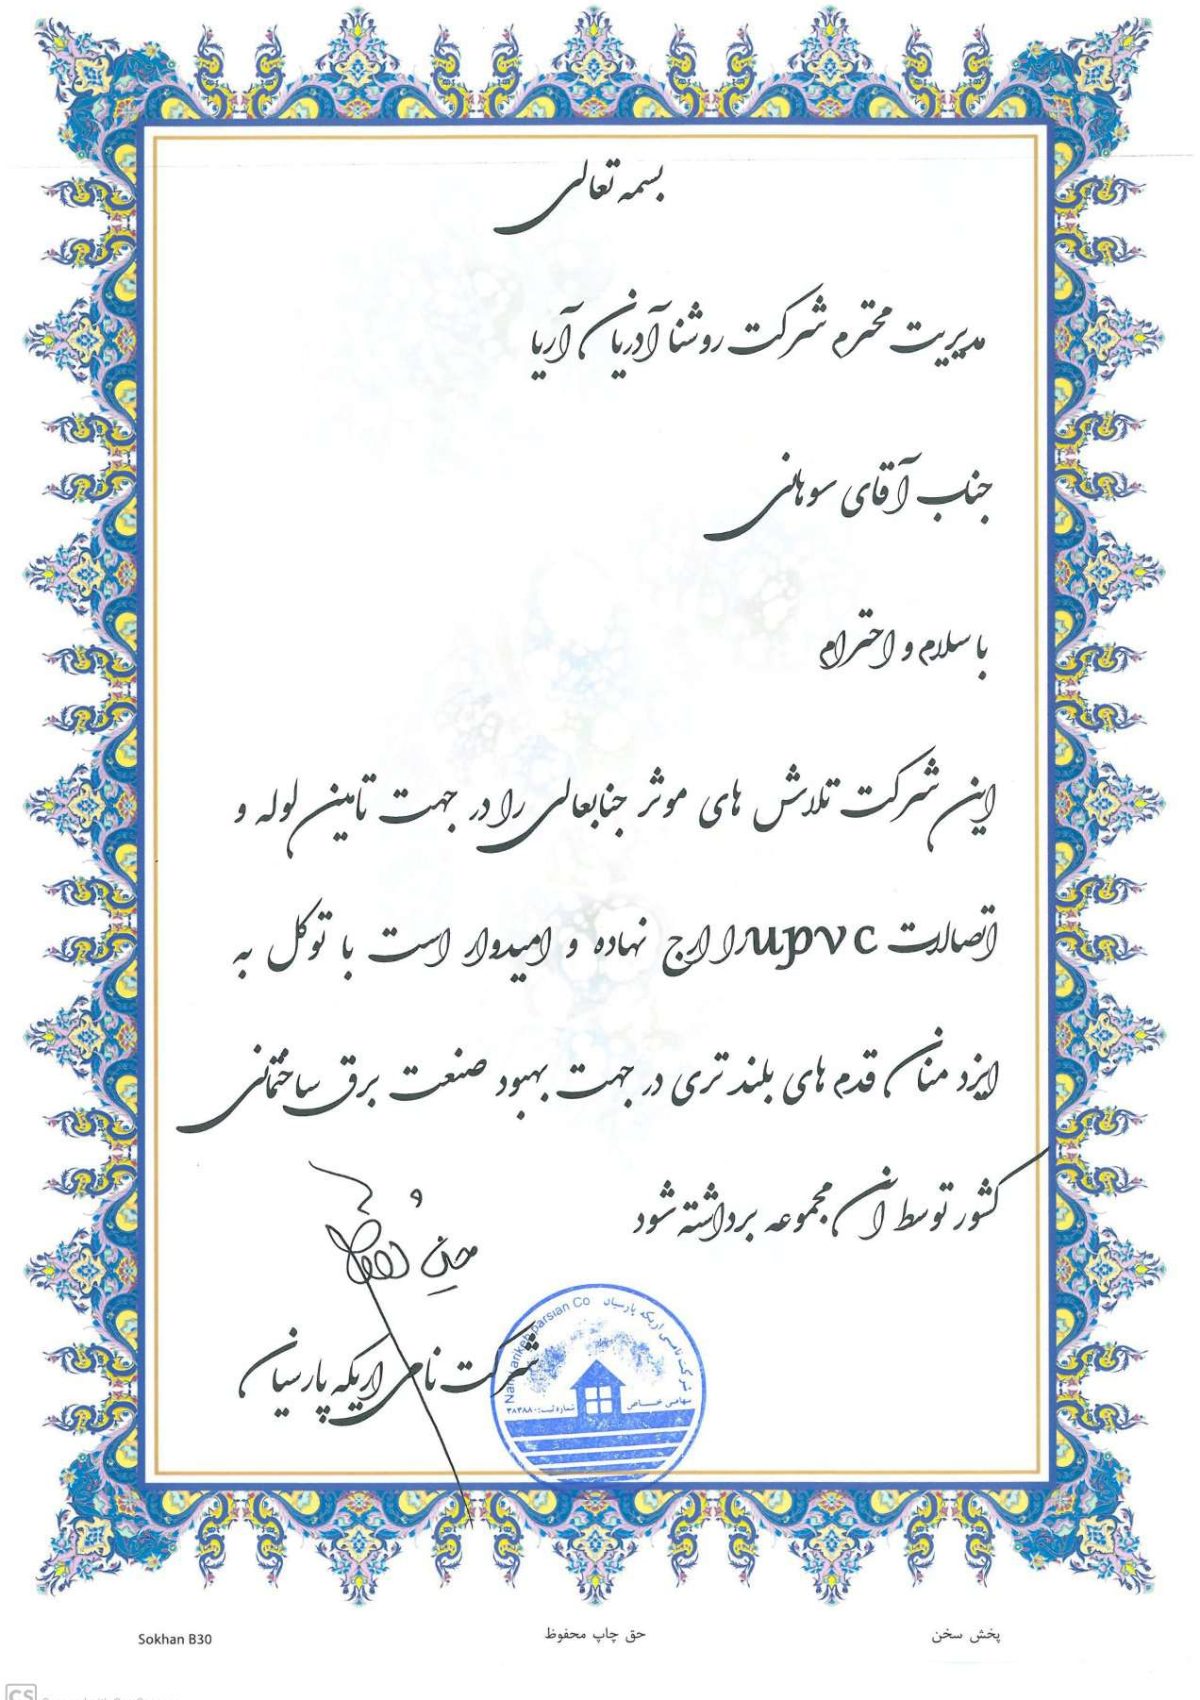 بسمه تعالی
مدیریت محترم شرکت روشنا آدریان آریا
جناب آقای سوهانی
با سلام و احترام
این شرکت تلاش های موثر جنابعالی را در جهت تامین لوله و
اتصالات upvc را ارج نهاده و امیدوار است با توکل به
ایزد منان قدم های بلند تری در جهت بهبود صنعت برق ساختمانی
کشور توسط ان مجموعه برداشته شود
شرکت نامی اریکه پارسیان
شرکت نامی اریکه پارسیان
Nami arikeh parsian Co
سهامی خاص
شماره ثبت: ۳۸۳۸۸۰
Sokhan B30
حق چاپ محفوظ
پخش سخن
CS